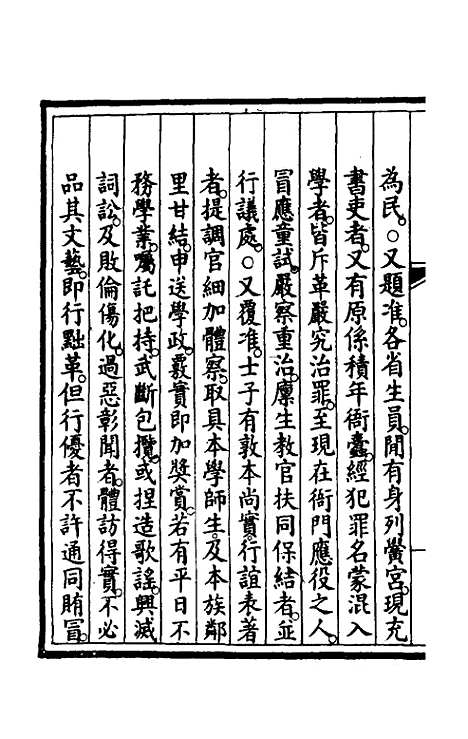 為民。○又題准。各省生員。聞有身列黌宮。現充
書吏者。又有原係積年衙蠹。經犯罪名蒙混入
學者。皆斥革嚴究治罪。至現在衙門應役之人。
冒應童試。嚴察重治。廩生教官扶同保結者。並
行議處。○又覆准。士子有敦本尚實。行誼表著
者。提調官細加體察。取具本學師生。及本族鄰
里甘結。申送學政。覈實即加獎賞。若有平日不
務學業。囑託把持。武斷包攬。或捏造歌謠。興滅
詞訟。及敗倫傷化。過惡彰聞者。體訪得實。不必
品其文藝。即行黜革。但行優者不許通同賄冒。